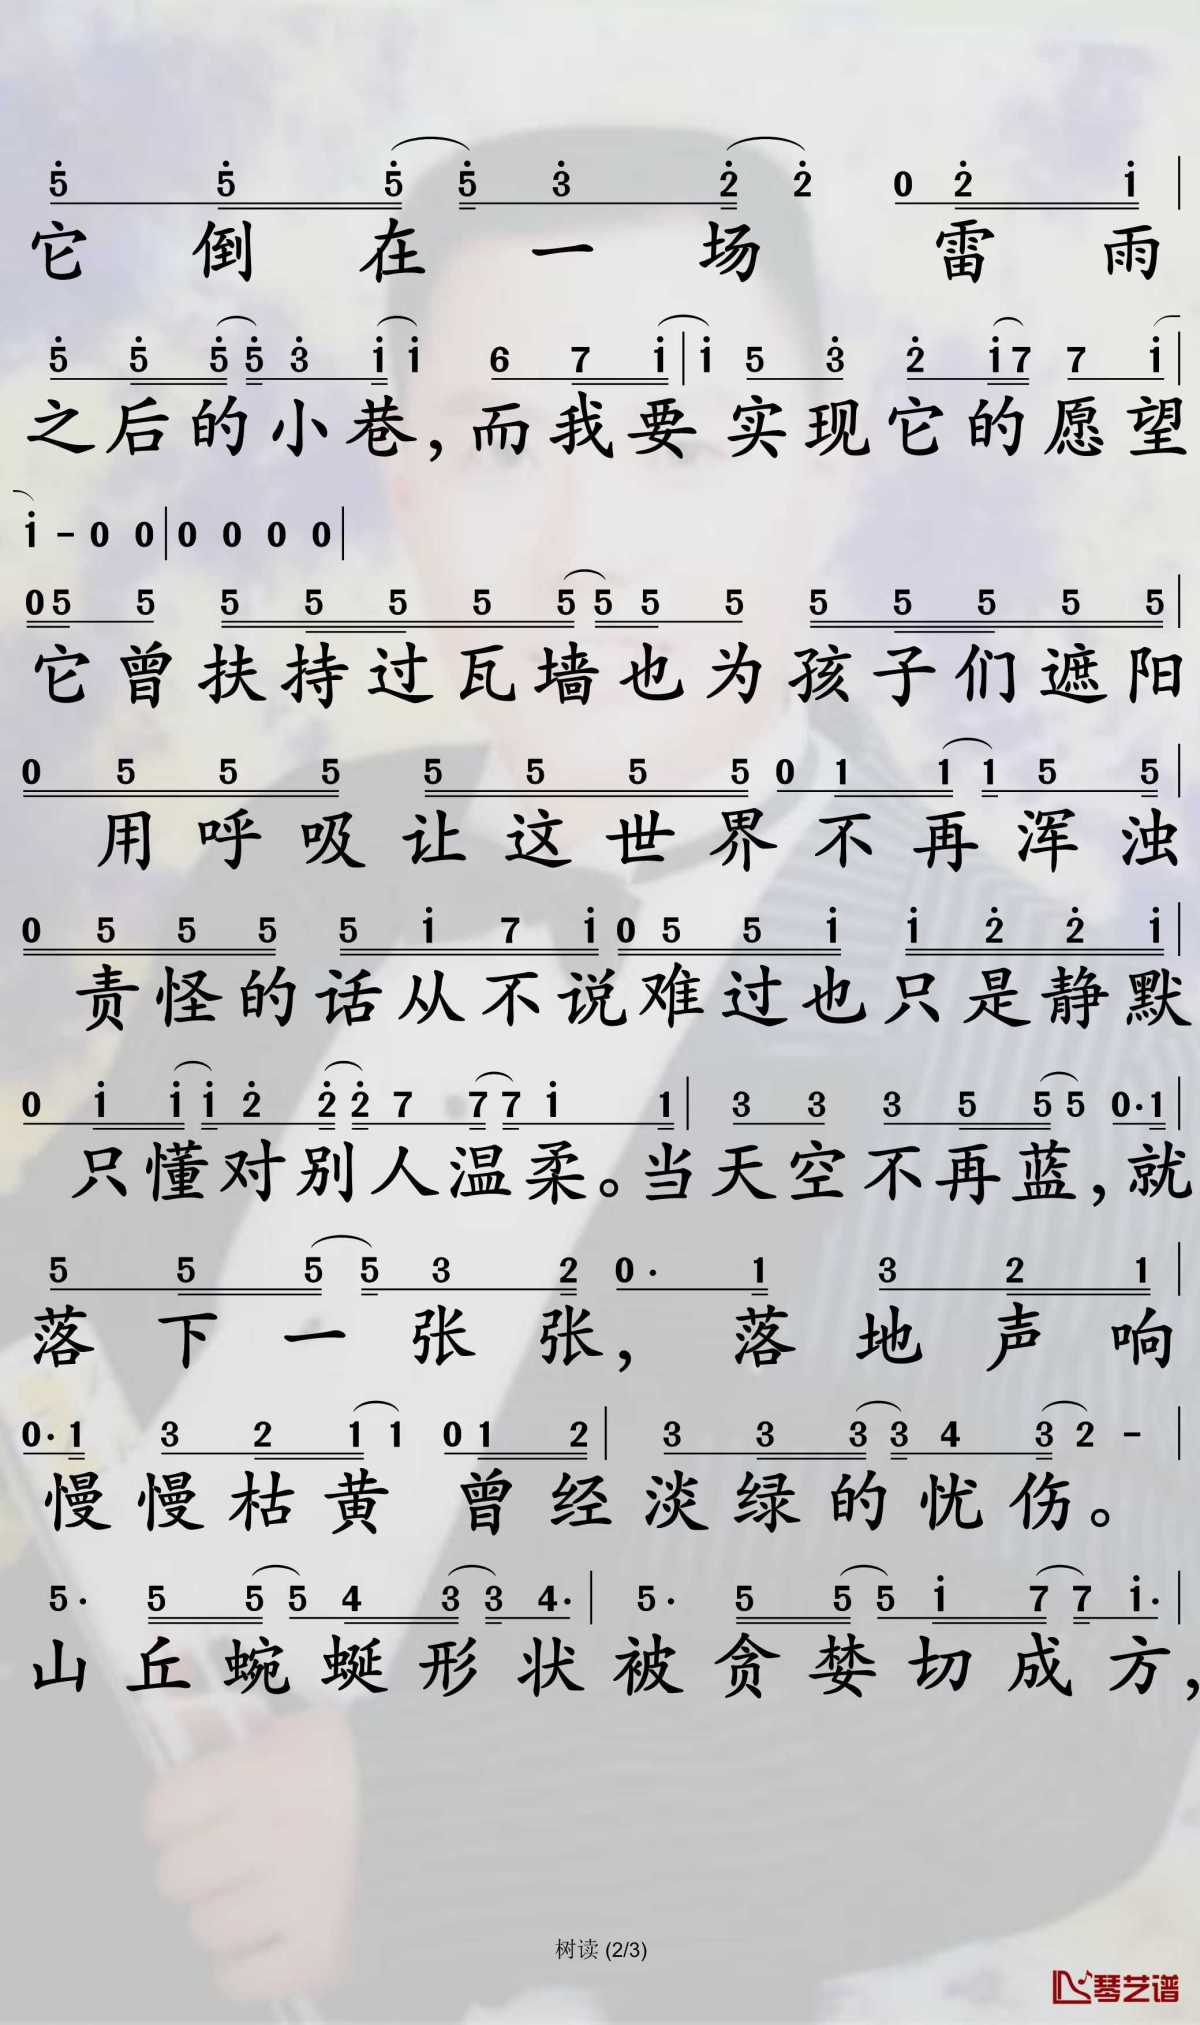 5 5 5 5 3 2 2 0 2 1
它倒在一场 雷雨
5 5 5 5 3 1 1 6 7 1 | 1 5 3 2 1 7 7 1
之后的小巷,而我要实现它的愿望
1 - 0 0 | 0 0 0 0
0 5 5 5 5 5 5 5 5 5 5 5 5 5 5 5
它曾扶持过瓦墙也为孩子们遮阳
0 5 5 5 5 5 5 5 0 1 1 1 5 5
用呼吸让这世界不再浑浊
0 5 5 5 5 1 7 1 0 5 5 1 1 2 2 1
责怪的话从不说难过也只是静默
0 1 1 1 2 2 2 7 7 7 1 1 | 3 3 3 5 5 5 0· 1
只懂对别人温柔。当天空不再蓝,就
5 5 5 5 3 2 0· 1 3 2 1
落下一张张,落地声响
0· 1 3 2 1 1 0 1 2 | 3 3 3 3 4 3 2 -
慢慢枯黄 曾经淡绿的忧伤。
5· 5 5 5 4 3 3 4· | 5· 5 5 5 1 7 7 1·
山丘蜿蜒形状被贪婪切成方,
树读 (2/3)
琴艺谱